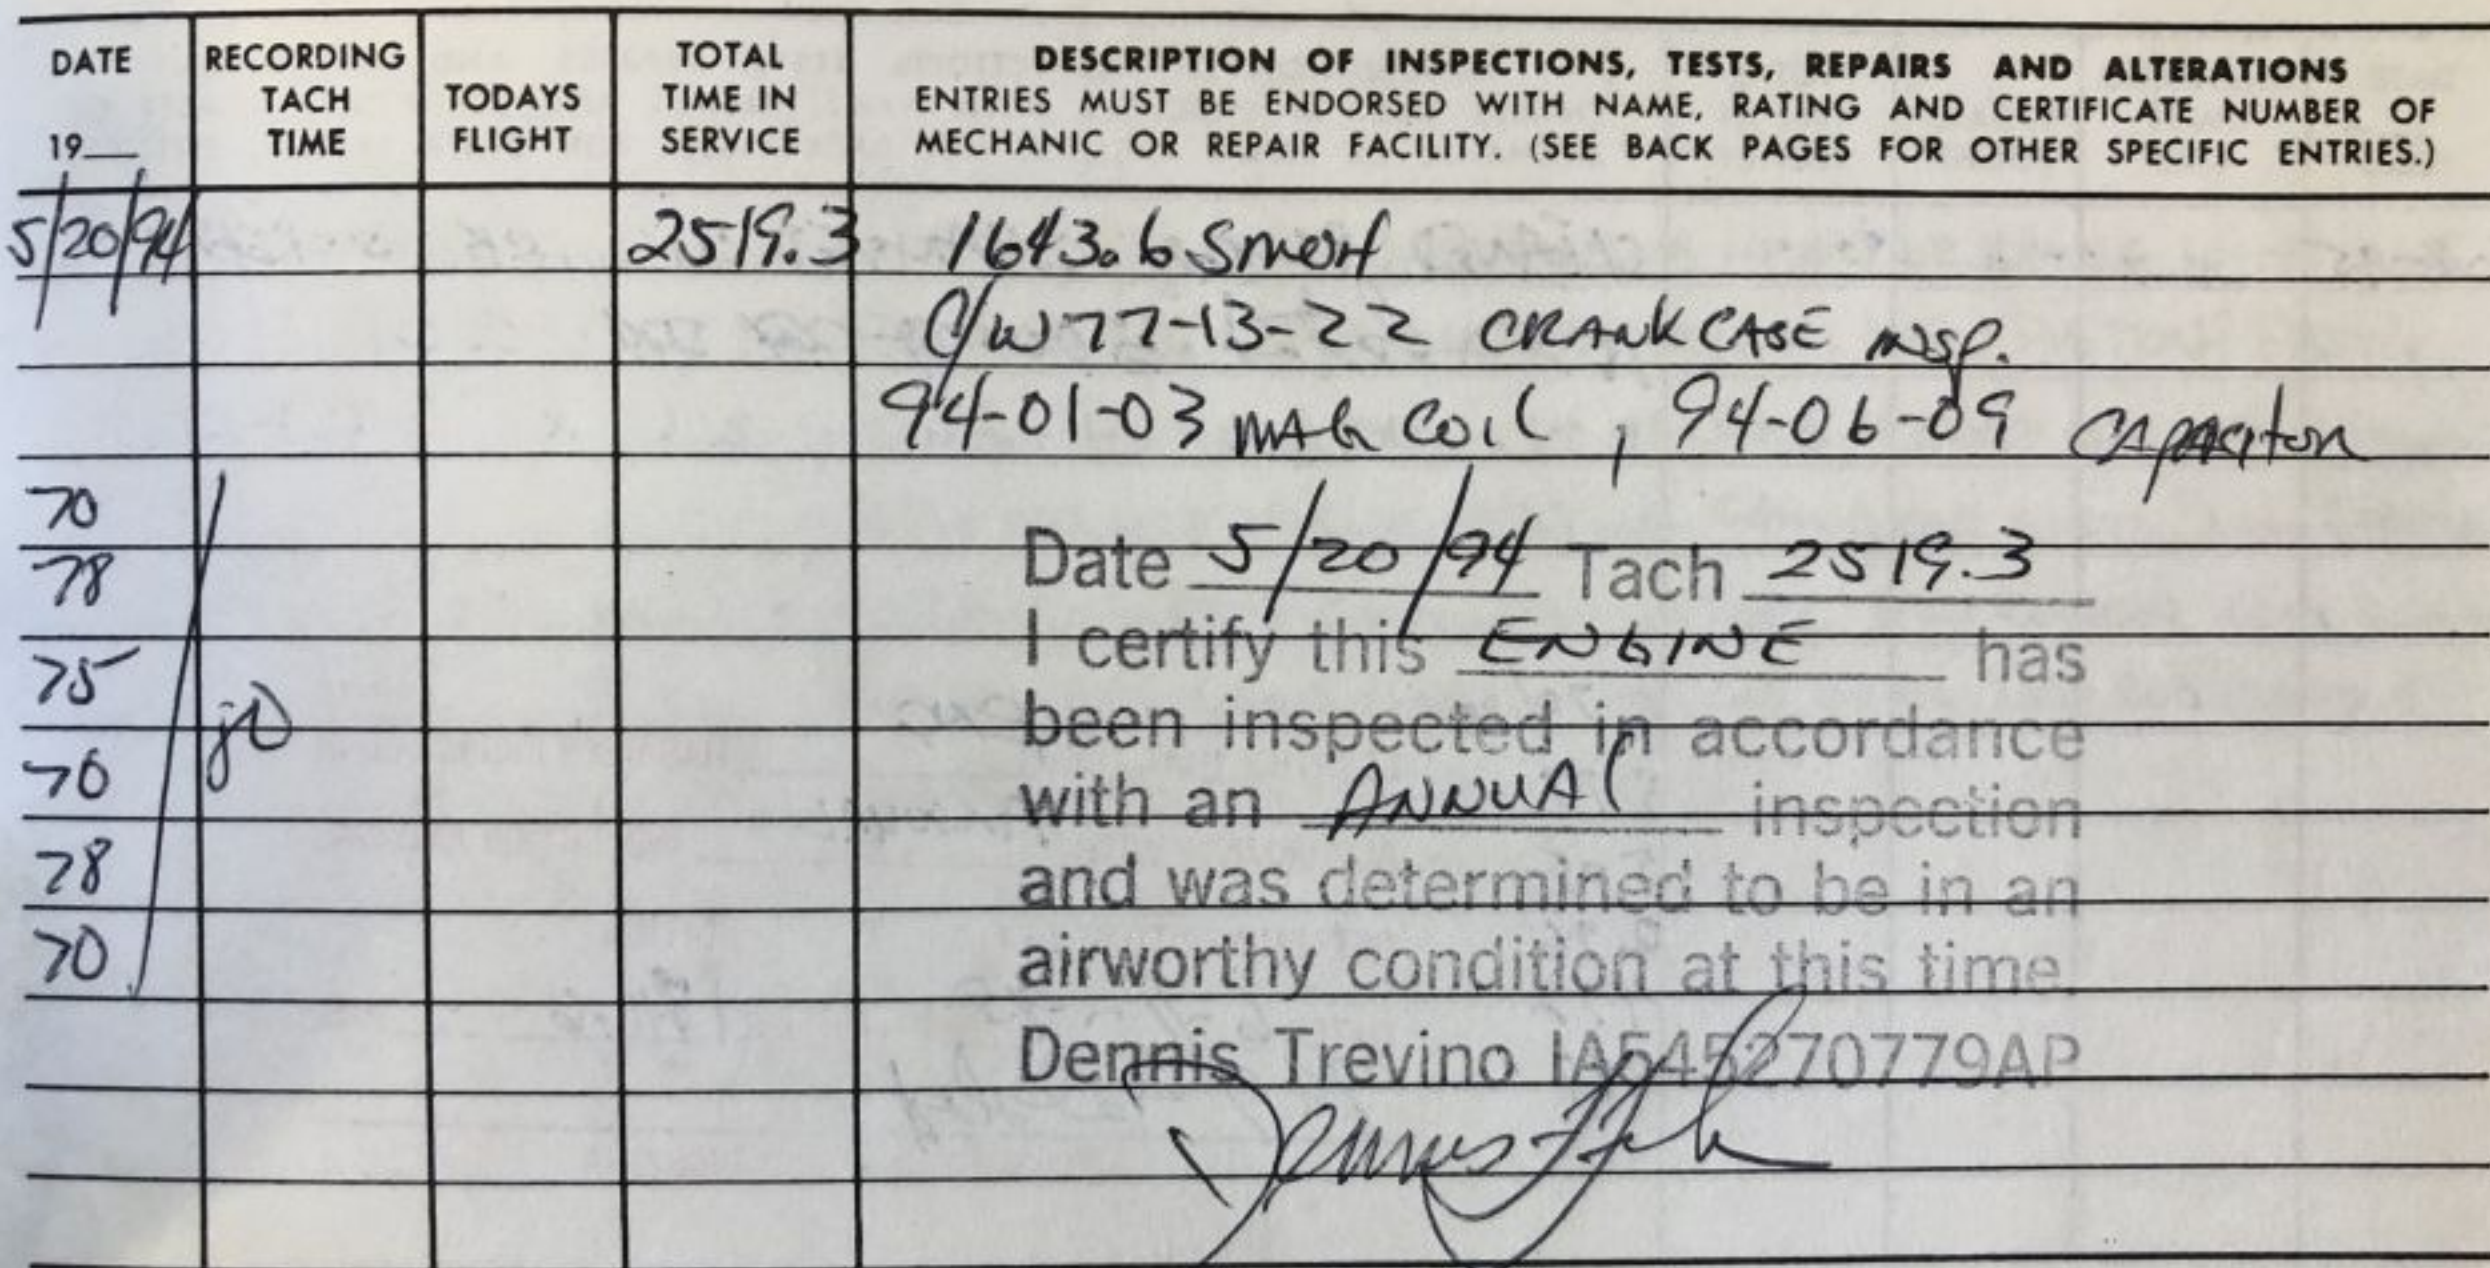 DATE
19__
RECORDING
TACH
TIME
TODAYS
FLIGHT
TOTAL
TIME IN
SERVICE
DESCRIPTION OF INSPECTIONS, TESTS, REPAIRS AND ALTERATIONS
ENTRIES MUST BE ENDORSED WITH NAME, RATING AND CERTIFICATE NUMBER OF
MECHANIC OR REPAIR FACILITY. (SEE BACK PAGES FOR OTHER SPECIFIC ENTRIES.)
5/20/94 2519.3 1643.6 SMOH
C/W 77-13-22 CRANKCASE INSP.
94-01-03 MAG COIL, 94-06-09 CAPACITOR
70
78
75
76
78
70
Date 5/20/94 Tach 2519.3
I certify this ENGINE has
been inspected in accordance
with an ANNUAL inspection
and was determined to be in an
airworthy condition at this time.
Dennis Trevino IA545270779AP